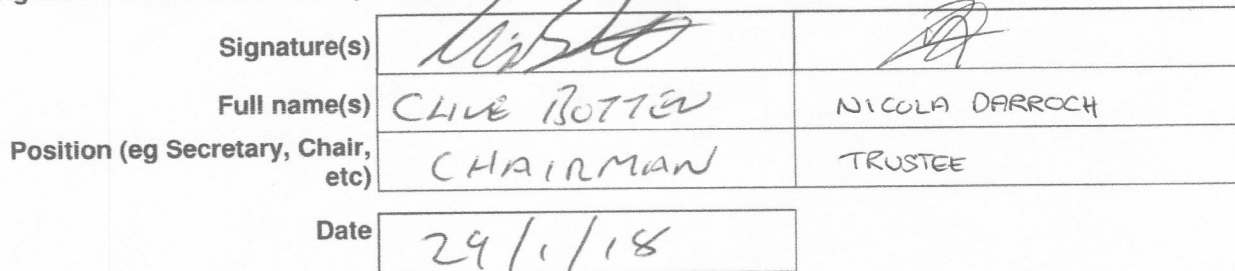 Signature(s)
Full name(s) CLIVE BOTTEN NICOLA DARROCH
Position (eg Secretary, Chair, CHAIRMAN TRUSTEE
etc)
Date 29/1/18